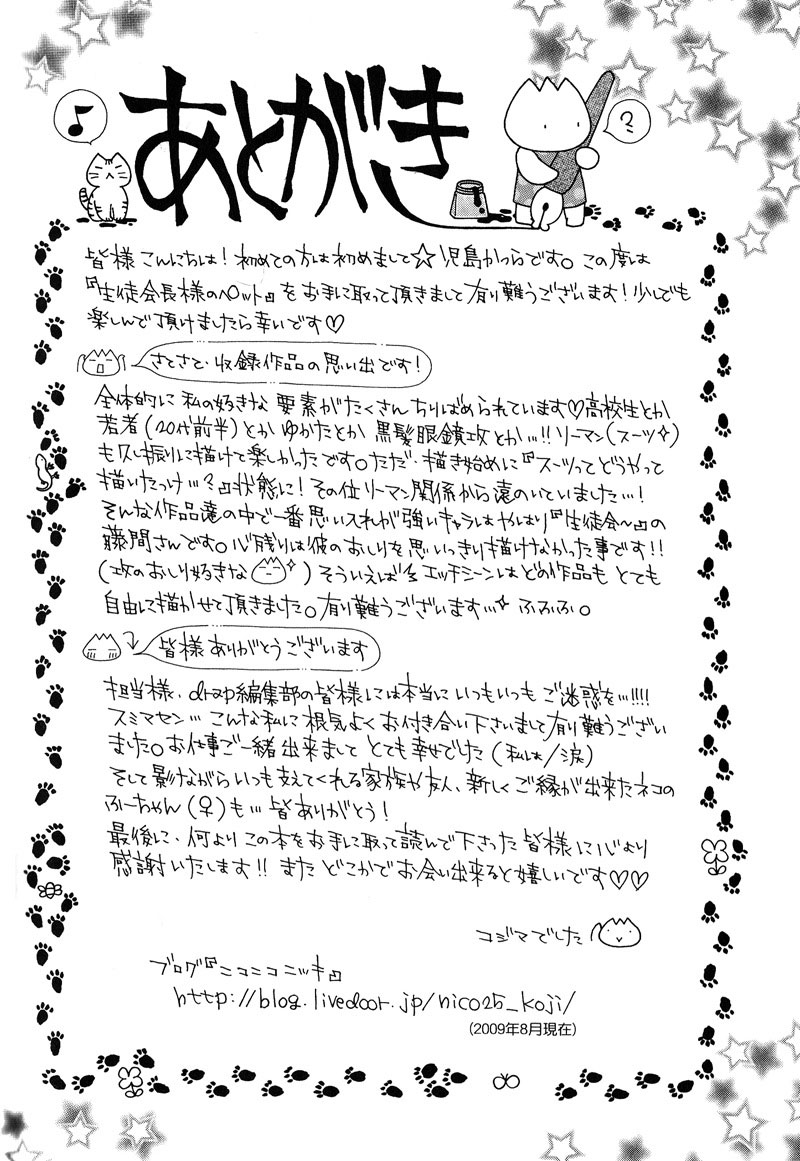 あとがき
?
皆様こんにちは!初めての方は初めまして☆児島かつらです。この度は
『生徒会長様のペット』をお手に取って頂きまして有り難うございます!少しでも
楽しんで頂けましたら幸いです♡
さてさて、収録作品の思い出です!
全体的に私の好きな要素がたくさんちりばめられています♡高校生とか
若者(20代前半)とかゆかたとか黒髪眼鏡攻とか…!!リーマン(スーツ✧)
も久し振りに描けて楽しかったです。ただ、描き始めに『スーツってどうやって
描いたっけ…?』状態に!その位リーマン関係から遠のいていました…!
そんな作品達の中で一番思い入れが強いキャラはやはり『生徒会〜』の
藤間さんです。心残りは彼のおしりを思いっきり描けなかった事です!!
(攻のおしり好きな ✧)そういえばエッチシーンはどの作品もとても
自由に描かせて頂きました。有り難うございます…✧ふふふ。
皆様ありがとうございます
担当様、drap編集部の皆様には本当にいつもいつもご迷惑を…!!!!
スミマセン…こんな私に根気よくお付き合い下さいまして有り難うござい
ました。お仕事ご一緒出来ましてとても幸せでした(私は/涙)
そして影ながらいつも支えてくれる家族や友人、新しくご縁が出来たネコの
ふーちゃん(♀)も…皆ありがとう!
最後に、何よりこの本をお手に取って読んで下さった皆様に心より
感謝いたします!!またどこかでお会い出来ると嬉しいです♡♡
コジマでした
ブログ『ニコニコニッキ』
http://blog.livedoor.jp/nico25_koji/
(2009年8月現在)